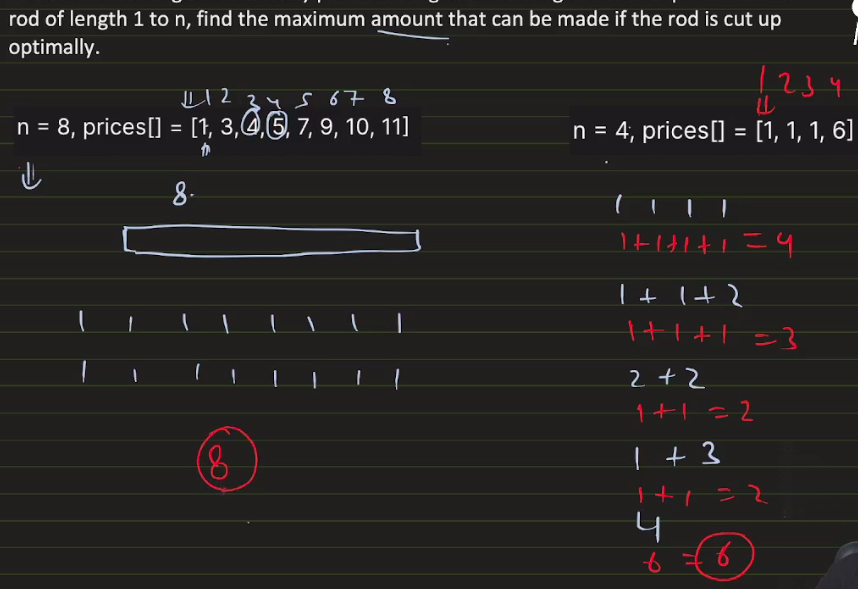 rod of length 1 to n, find the maximum amount that can be made if the rod is cut up
optimally.
1 2 3 4 5 6 7 8
n = 8, prices[] = [1, 3, 4, 5, 7, 9, 10, 11]
8.
1 1 1 1 1 1 1 1
1 1 1 1 1 1 1 1
8
1 2 3 4
n = 4, prices[] = [1, 1, 1, 6]
1 1 1 1
1+1+1+1 = 4
1 + 1 + 2
1+1+1 = 3
2 + 2
1+1 = 2
1 + 3
1+1 = 2
4
6 = 6